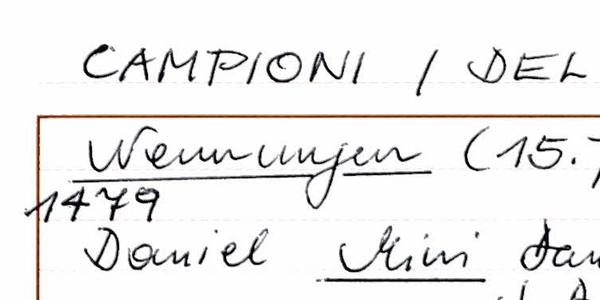 CAMPIONI / DEL
Wennungen (15.7
1479
Daniel Mini